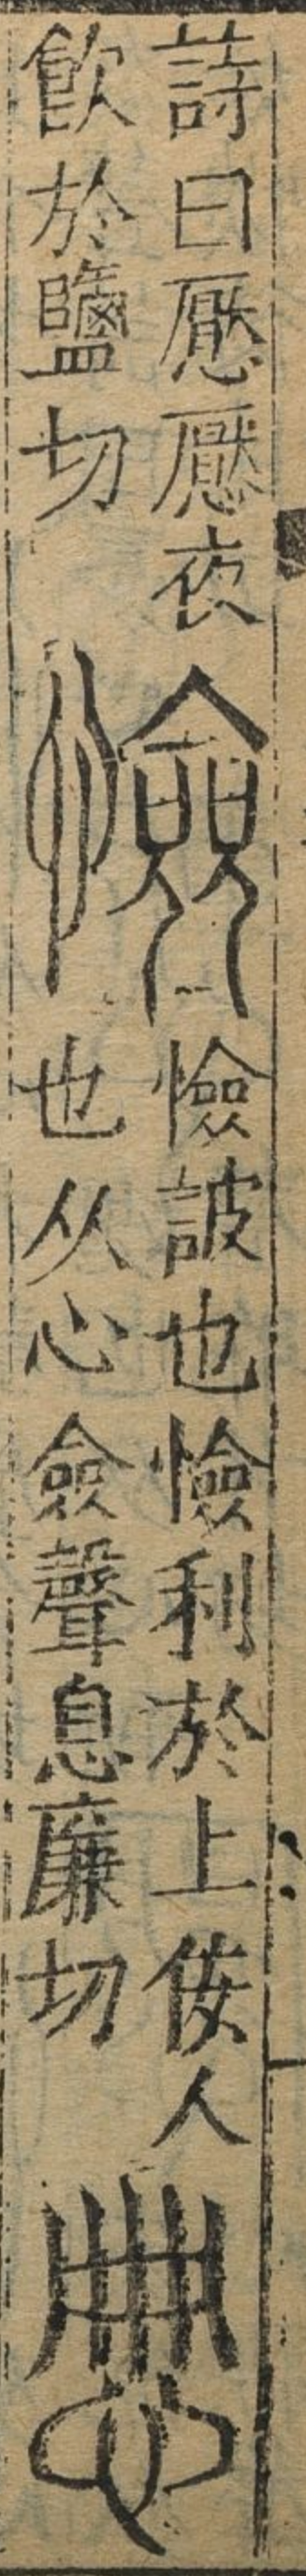 詩曰懕懕夜
飲於鹽切
憸
憸詖也憸利於上佞人
也从心僉聲息廉切